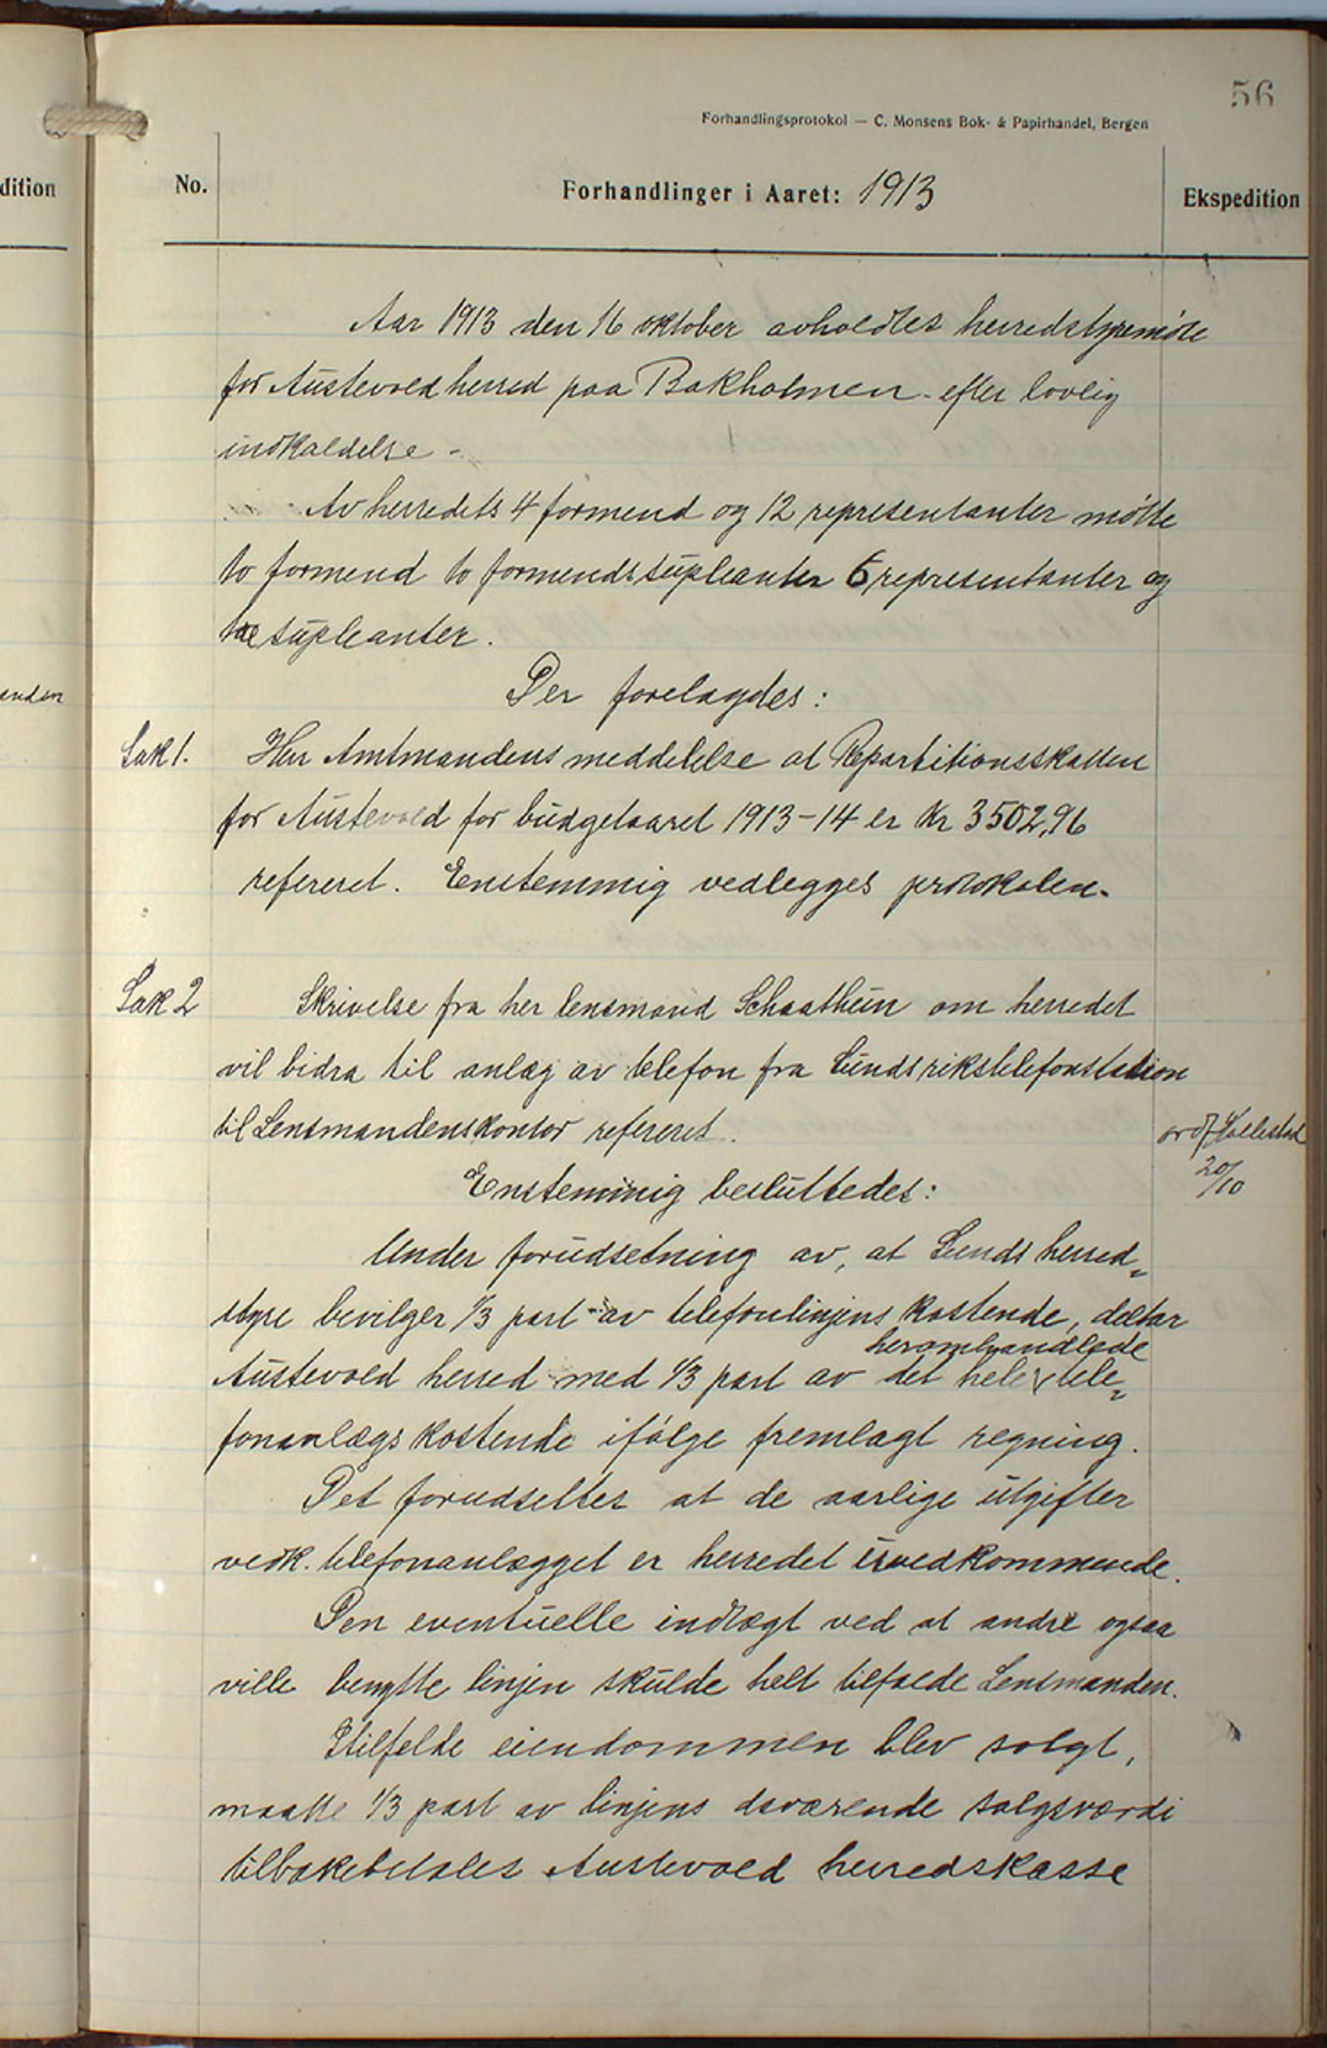 56
Forhandlingsprotokol — C. Monsens Bok- & Papirhandel, Bergen
dition
No.
Forhandlinger i Aaret: 1913
Ekspedition
Aar 1913 den 16 oktober avholdtes herredstyremøte
for Austevold herred paa Bakholmen - efter lovlig
indkaldelse -
Av herredets 4 formend og 12 representanter møtte
to formend to formendssupleanter 6 representanter og
supleanter.
anden
Der forelagdes:
Sak 1. Herr Amtmandens meddelelse at Repartitionsskatten
for Austevold for budgetaaret 1913-14 er Kr 3502,96
refereret. Enstemmig vedlegges protokolen.
Sak 2 Skrivelse fra her lensmand Schaathun om herredet
vil bidra til anlæg av telefon fra Sunds rikstelefonstation
til Lensmandenskontor refereret.
ordf
20/10
Enstemmig besluttedes:
Under forudsetning av, at Sunds herred„
styre bevilger 1/3 part av telefonlinjens kostende, deltar
heromhandlede
Austevold herred med 1/3 part av det hele tele„
fonanlægs kostende ifølge fremlagt regning.
Det forudsettes at de aarlige utgifter
vedk. telefonanlægget er herredet uvedkommende.
Den eventuelle indtægt ved at andre ogsaa
ville benytte linjen skulde helt tilfalde Lensmanden.
Itilfelde eiendommen blev solgt,
maatte 1/3 part av linjens daværende salgsværdi
tilbakebetales Austevold herredskasse